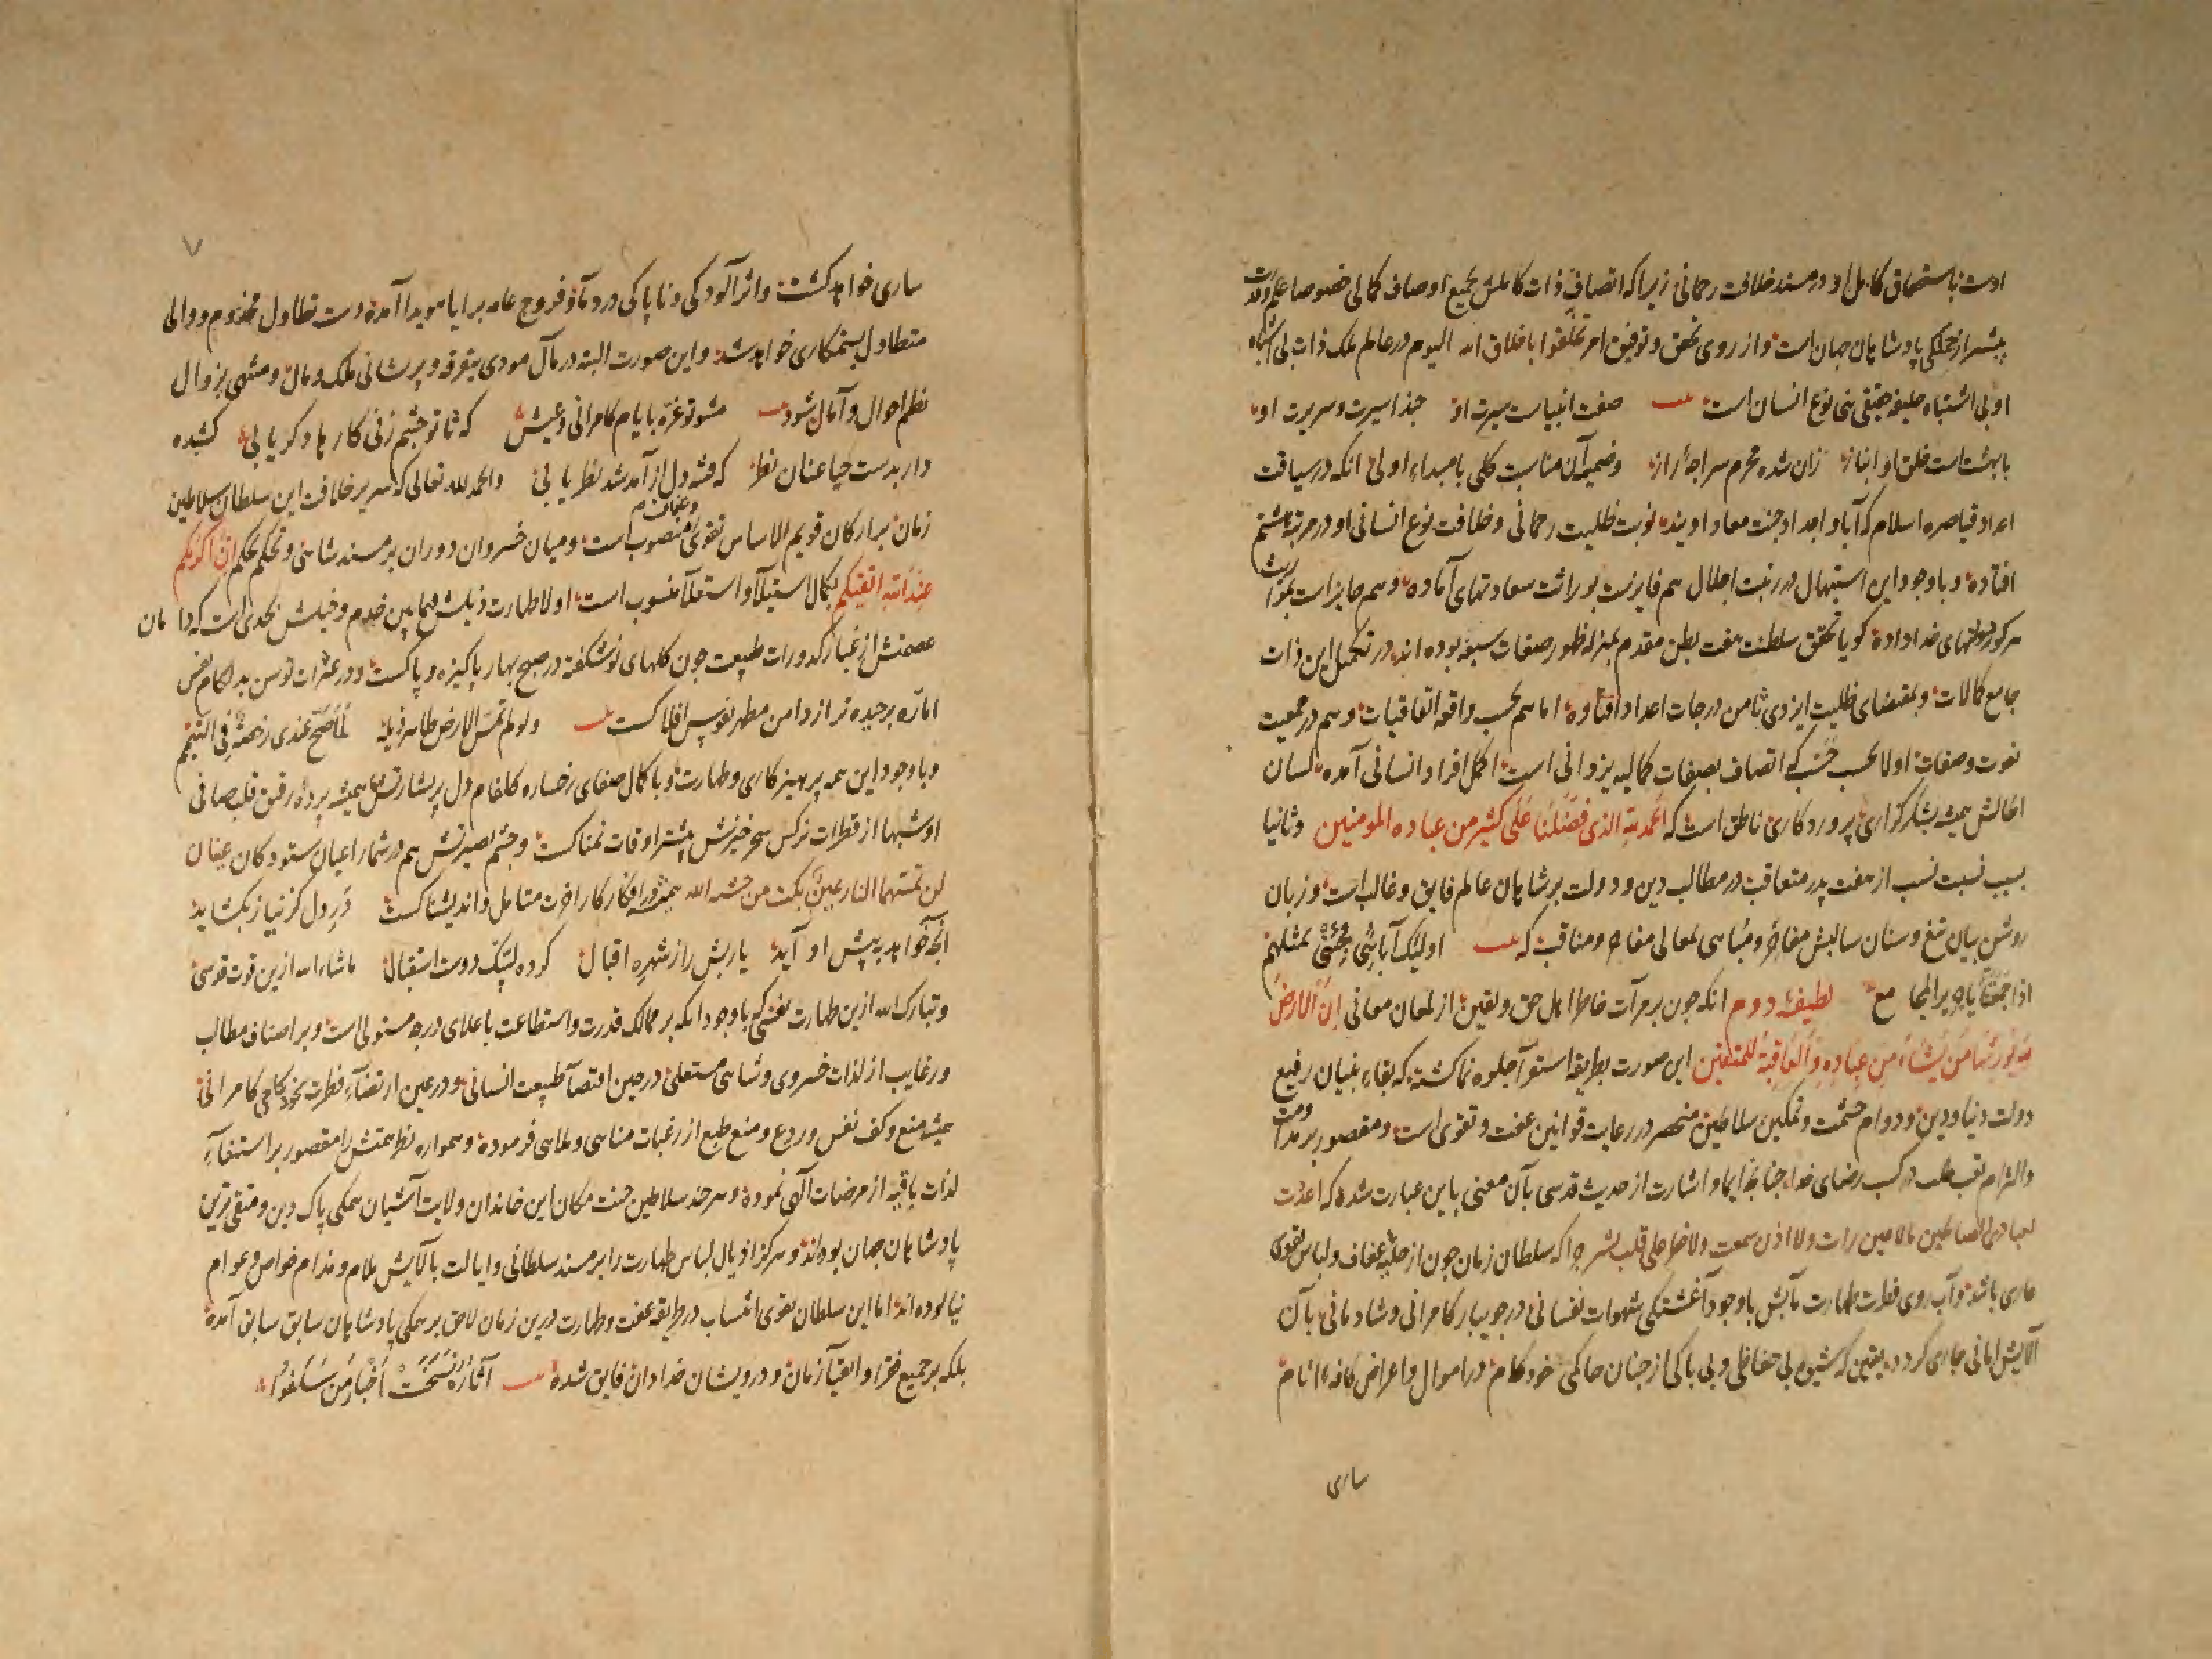 اوست باستحقاق کامل او در مسند خلافت رحمانی زیراکه اتصاف ذات کاملش بجمیع اوصاف کمالی خصوصا علم و قدرت
بیشتر از جملکی پادشاهان جهان است و از روی تحقق و توفیق امر تخلقوا باخلاق الله الیوم در عالم ملک ذات بی اشتباه
او بی اشتباه خلیفه حقیقی بنی نوع انسان است صفت انبیاست سیرت او حبذا سیرت و سریرت او
با بهشت است خلق او انباز زان شده محرم سراچه راز و ضمیمه آن مناسبت کلی با مبداء اولی انکه در سیاقت
اعداد قیاصره اسلام که آبا و اجداد جنت معاد اویند نوبت ظلیت رحمانی و خلافت نوع انسانی او در مرتبه هشتم
افتاده و با وجود این استیهال در رتبت اجلال هم فایزست بوراثت سعادتهای آماده و هم حایز است بمواریث
هرکونه دولتهای خداداده کویا تحقق سلطنت هفت بطن مقدم بمنزله ظهور صفات سبعه بوده اند در تکمیل این ذات
جامع کمالات و بمقتضای ظلیت ایزدی ثامن درجات اعداد افتاده اما هم بحسب واقعه اتفاقیات و هم در جمعیت
نعوت و صفات اولا بحسب حسب که اتصاف بصفات کمالیه یزدانی است اکمل افراد انسانی آمده لسان
احالش همیشه بشکرکزاری پروردکاری ناطق است که الحمد لله الذی فضلنا علی کثیر من عباده المومنین وثانیا
بسبب نسبت نسب از هفت پدر متعاقب در مطالب دین و دولت بر شاهان عالم فایق و غالب است و زبان
روشن بیان تیغ و سنان سالبش مفاخر و مباهی بمعالی مفاخر و مناقب که اولئک آبائی فجئنی بمثلهم
اذا جمعتنا یا جریر المجامع لطیفه دوم انکه چون بر مرآت خاطر اهل حق و یقین از لمعان معانی ان الارض
لله یورثها من یشاء من عباده والعاقبة للمتقین این صورت بطریقه استوآ جلوه نما کشته که بقاء بنیان رفیع
دولت دنیا و دین و دوام حشمت و تمکین سلاطین منحصر در رعایت قوانین عفت و تقوی است و مقصور بر مداومت
والتزام تعب طلب در کسب رضای خدا چنانچه ایما و اشارت از حدیث قدسی بآن معنی باین عبارت شده که اعددت
لعبادی الصالحین مالا عین رات ولا اذن سمعت ولا خطر علی قلب بشر چراکه سلطان زمان چون از حلیه عفاف و لباس تقوی
عاری باشد و آب روی فطرت طهارت مآبش با وجود آغشتکی شهوات نفسانی در جویبار کامرانی و شادمانی بآن
آلایش امانی جاری کردد یقین که شیوه بی حفاظی و بی باکی از چنان حاکمی خودکام در اموال و اعراض کافه انام
ساری
٧
ساری خواهد کشت و اثر آلودکی و ناپاکی در دمآ و فروج عامه برایا هویدا آمده دست تطاول مخدوم و والی
متطاول بستمکاری خواهد شد و این صورت البته در مآل مودی بتفرقه و پریشانی ملک و مال و منتهی بزوال
نظم احوال و آمال شود مشو تو غره بایام کامرانی و عیش که تا تو چشم زنی کارها دکر یابی کشیده
دار بدست حیا عنان نظر که فتنه دل از آمد شد نظر یابی والحمد لله تعالی که سریر خلافت این سلطان سلاطین
زمان بر ارکان قویم الاساس تقوی و عفاف منصوب است و میان خسروان دوران بر مسند شاهی و تحکم بحکم ان اکرمکم
عند الله اتقیکم بکمال استیلآ و استعلآ منسوب است اولا طهارت ذیلش فیمابین خدم و خیلش بحدی است که دامان
عصمتش از غبار کدورات طبیعت چون کلهای نوشکفته در صبح بهار پاکیزه و پاکست و در عثرات توسن بدلکام نفس
اماره برچیده تر از دامن مطهر نفوس افلاکست ولو لم تمس الارض طاهر ذیله لما صح عندی رخصة فی التیمم
و با وجود این همه پرهیزکاری و طهارت و با کمال صفای رخساره کلفام دل پر بشارتش همیشه پرده رقت قلب صافی
او شبها از قطرات نرکس سحر خیزش بیشتر اوقات نمناکست و چشم بصیرتش هم در شمار اعیان ستودکان عینان
لن تمسهما النار عین بکت من خشیة الله همیشه در افکار کار اخرت متامل و اندیشناکست در دل کر نیاز بکشاید
آنچه خواهد بپیش او آید یاربش راز شهره اقبال کرده لبیک دوست استقبال ماشاء الله ازین قوت قدسی
وتبارک الله ازین طهارت نفسی که با وجود انکه بر ممالک قدرت و استطاعت باعلای درجه مستولی است و بر اصناف مطالب
و رغایب از لذات خسروی و شاهی مستعلی در حین اقتضآ طبیعت انسانی و در عین ارتضآء فطرت بخودکامی کامرانی
همیشه منع و کف نفس و ردع و منع طبع از رغبات مناهی و ملاهی فرموده و همواره نظر همتش را مقصور بر استیفآء
لذات باقیه از مرضیات آلهی نموده و هرچند سلاطین جنت مکان این خاندان ولایت آشیان همکی پاک دین و متقی ترین
پادشاهان جهان بوده اند و هرکز اذیال لباس طهارت را بر مسند سلطانی و ایالت بآلایش ملام و مذام خواص و عوام
نیالوده اند اما این سلطان تقوی انتساب در طریقه عفت و طهارت درین زمان لاحق بر همکی پادشاهان سابق سابق آمده
بلکه بر جمیع فقرا و اتقیآ زمان و درویشان خدادان فایق شده آثاره نسخت اخبار من سلفوا